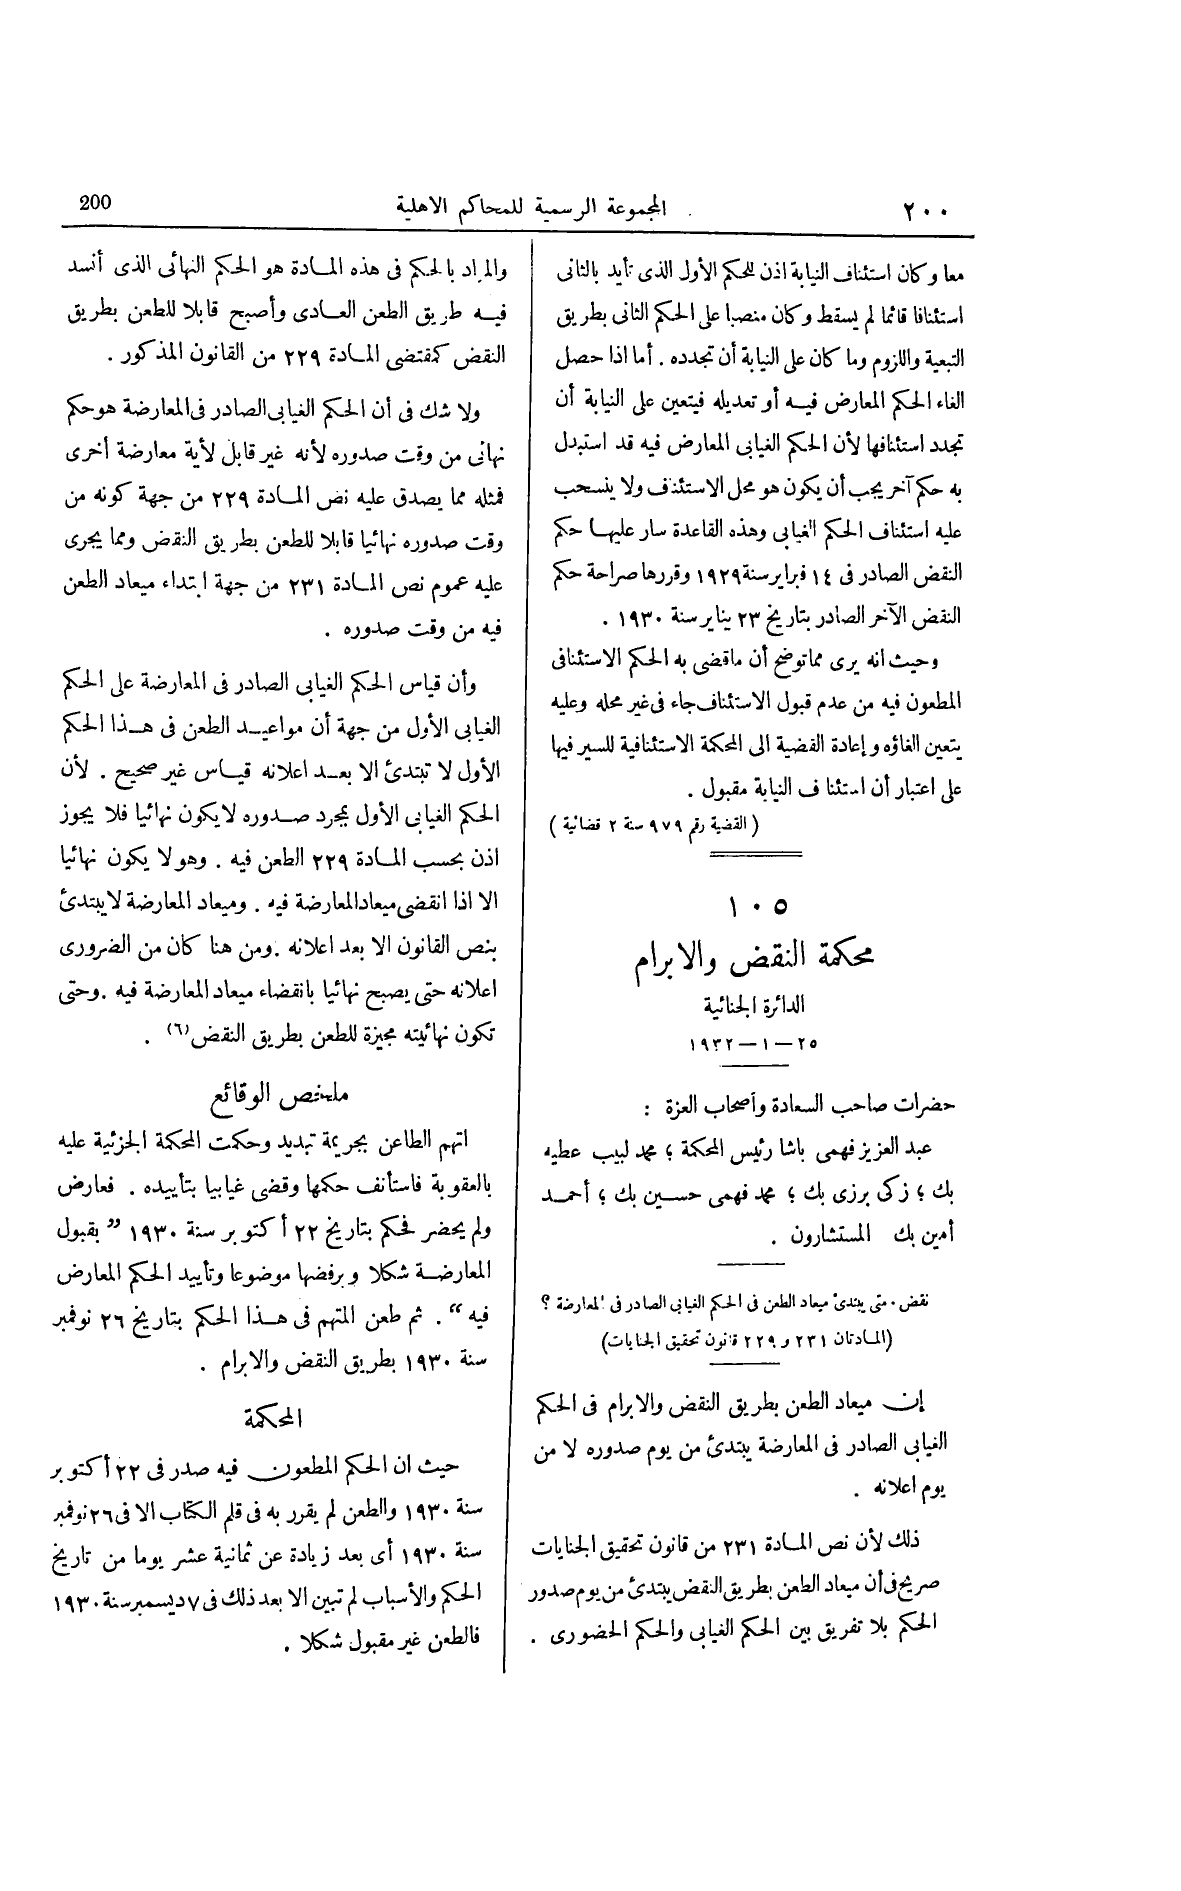 ٢٠٠ المجموعة الرسمية للمحاكم الاهلية 200
معا وكان استئناف النيابة اذن للحكم الأول الذى تأيد بالثانى
استئنافا قائما لم يسقط وكان منصبا على الحكم الثانى بطريق
التبعية واللزوم وما كان على النيابة أن تجدده . أما اذا حصل
الغاء الحكم المعارض فيه أو تعديله فيتعين على النيابة أن
تجدد استئنافها لأن الحكم الغيابى المعارض فيه قد استبدل
به حكم آخر يجب أن يكون هو محل الاستئناف ولا ينسحب
عليه استئناف الحكم الغيابى وهذه القاعدة سار عليها حكم
النقض الصادر فى ١٤ فبراير سنة ١٩٢٩ وقررها صراحة حكم
النقض الآخر الصادر بتاريخ ٢٣ يناير سنة ١٩٣٠ .
وحيث انه يرى مما توضح أن ماقضى به الحكم الاستئنافى
المطعون فيه من عدم قبول الاستئناف جاء فى غير محله وعليه
يتعين الغاؤه وإعادة القضية الى المحكمة الاستئنافية للسير فيها
على اعتبار أن استئناف النيابة مقبول .
( القضية رقم ٩٧٩ سنة ٢ قضائية )
١٠٥
محكمة النقض والابرام
الدائرة الجنائية
٢٥ — ١ — ١٩٣٢
حضرات صاحب السعادة وأصحاب العزة :
عبد العزيز فهمى باشا رئيس المحكمة ؛ محمد لبيب عطيه
بك ؛ زكى برزى بك ؛ محمد فهمى حسين بك ؛ أحمد
أمين بك المستشارون .
نقض . متى يبتدئ ميعاد الطعن فى الحكم الغيابى الصادر فى المعارضة ؟
(المادتان ٢٣١ و ٢٢٩ قانون تحقيق الجنايات)
إن ميعاد الطعن بطريق النقض والابرام فى الحكم
الغيابى الصادر فى المعارضة يبتدئ من يوم صدوره لا من
يوم اعلانه .
ذلك لأن نص المادة ٢٣١ من قانون تحقيق الجنايات
صريح فى أن ميعاد الطعن بطريق النقض يبتدئ من يوم صدور
الحكم بلا تفريق بين الحكم الغيابى والحكم الحضورى .
والمراد بالحكم فى هذه المادة هو الحكم النهائى الذى أنسد
فيه طريق الطعن العادى وأصبح قابلا للطعن بطريق
النقض كمقتضى المادة ٢٢٩ من القانون المذكور .
ولا شك فى أن الحكم الغيابى الصادر فى المعارضة هو حكم
نهائى من وقت صدوره لأنه غير قابل لأية معارضة أخرى
فمثله مما يصدق عليه نص المادة ٢٢٩ من جهة كونه من
وقت صدوره نهائيا قابلا للطعن بطريق النقض ومما يجرى
عليه عموم نص المادة ٢٣١ من جهة ابتداء ميعاد الطعن
فيه من وقت صدوره .
وأن قياس الحكم الغيابى الصادر فى المعارضة على الحكم
الغيابى الأول من جهة أن مواعيد الطعن فى هذا الحكم
الأول لا تبتدئ الا بعد اعلانه قياس غير صحيح . لأن
الحكم الغيابى الأول بمجرد صدوره لايكون نهائيا فلا يجوز
اذن بحسب المادة ٢٢٩ الطعن فيه . وهو لا يكون نهائيا
الا اذا انقضى ميعاد المعارضة فيه . وميعاد المعارضة لايبتدئ
بنص القانون الا بعد اعلانه . ومن هنا كان من الضرورى
اعلانه حتى يصبح نهائيا بانقضاء ميعاد المعارضة فيه . وحتى
تكون نهائيته مجيزة للطعن بطريق النقض(٦) .
ملخص الوقائع
اتهم الطاعن بجريمة تبديد وحكمت المحكمة الجزئية عليه
بالعقوبة فاستأنف حكمها وقضى غيابيا بتأييده . فعارض
ولم يحضر فحكم بتاريخ ٢٢ أكتوبر سنة ١٩٣٠ ” بقبول
المعارضة شكلا وبرفضها موضوعا وتأييد الحكم المعارض
فيه “ . ثم طعن المتهم فى هذا الحكم بتاريخ ٢٦ نوفمبر
سنة ١٩٣٠ بطريق النقض والابرام .
المحكمة
حيث ان الحكم المطعون فيه صدر فى ٢٢ أكتوبر
سنة ١٩٣٠ والطعن لم يقرر به فى قلم الكتاب الا فى ٢٦ نوفمبر
سنة ١٩٣٠ أى بعد زيادة عن ثمانية عشر يوما من تاريخ
الحكم والأسباب لم تبين الا بعد ذلك فى ٧ ديسمبر سنة ١٩٣٠
فالطعن غير مقبول شكلا .